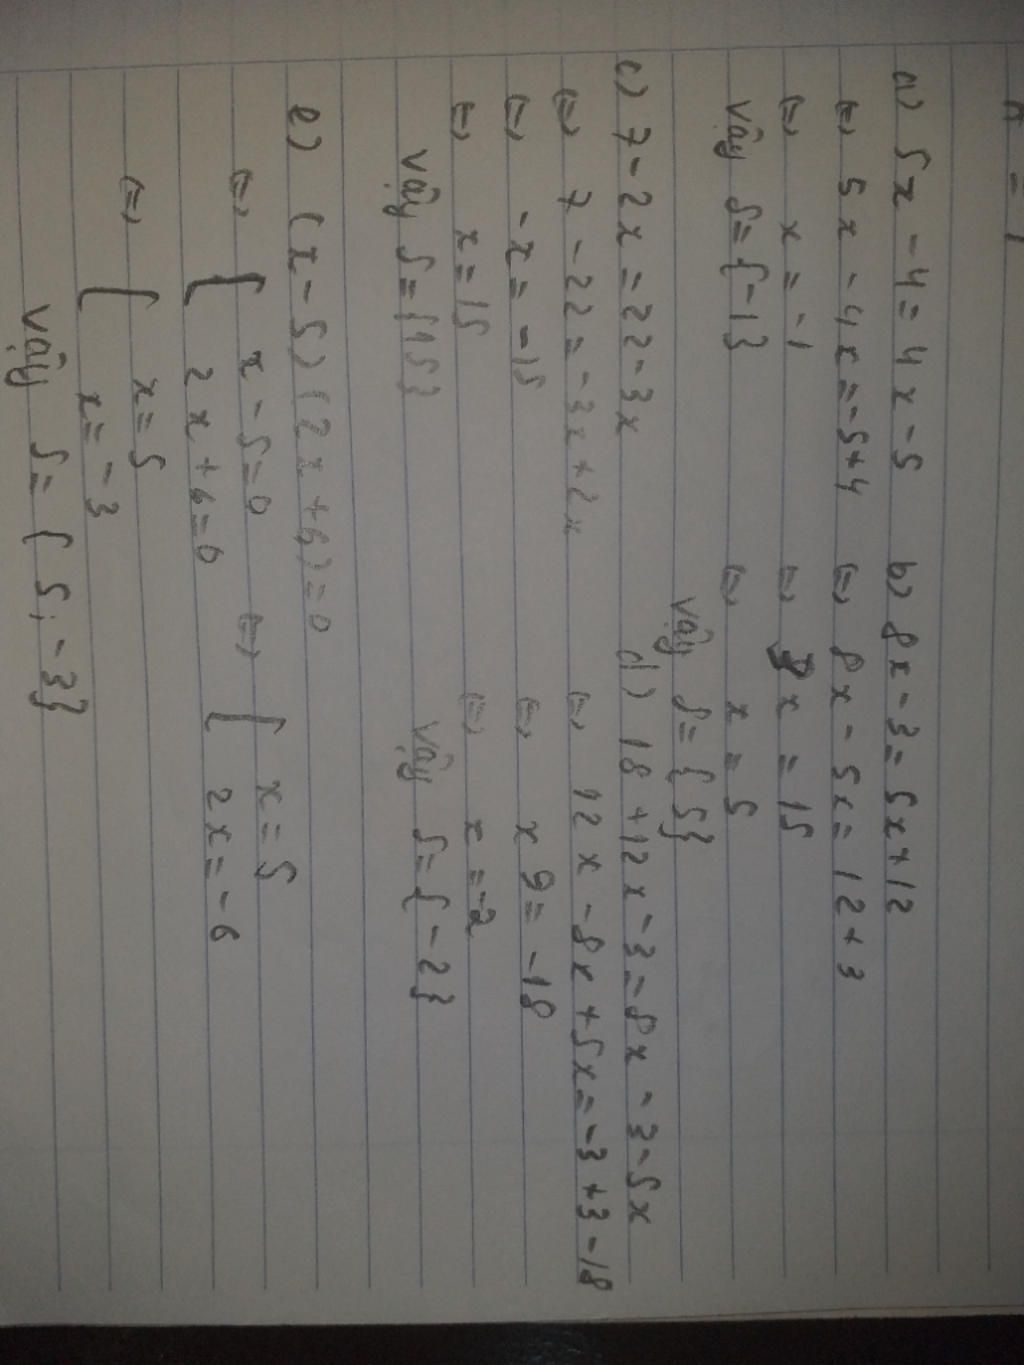 a) 5x - 4 = 4x - 5
⇔ 5x - 4x = -5+4
⇔ x = -1
Vậy S = {-1}
b) 8x - 3 = 5x + 12
⇔ 8x - 5x = 12 + 3
⇔ 3x = 15
⇔ x = 5
Vậy S = {5}
c) 7 - 2x = 22 - 3x
⇔ 7 - 22 = -3x + 2x
⇔ -x = -15
⇔ x = 15
Vậy S = {15}
d) 18 + 12x - 3 = 8x - 3 - 5x
⇔ 12x - 8x + 5x = -3 + 3 - 18
⇔ x 9 = -18
⇔ x = -2
Vậy S = {-2}
e) (x - 5)(2x + 6) = 0
⇔ [ x - 5 = 0 ⇔ [ x = 5
2x + 6 = 0 2x = -6
⇔ [ x = 5
x = -3
Vậy S = { 5; -3}